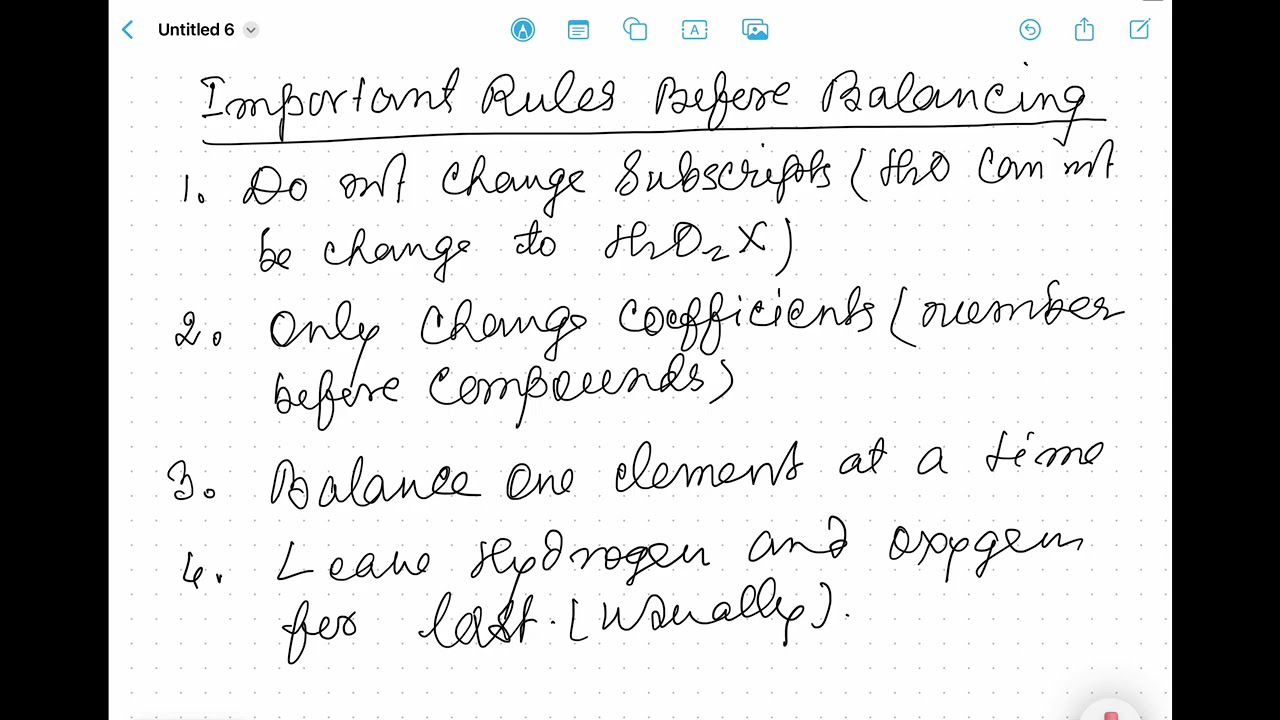 Untitled 6
A
Important Rules Before Balancing
1. Do not change Subscripts (H2O can not
be change to H2O2 X)
2. Only change coefficients (number
before compounds)
3. Balance one element at a time
4. Leave Hydrogen and oxygen
for last. (usually).